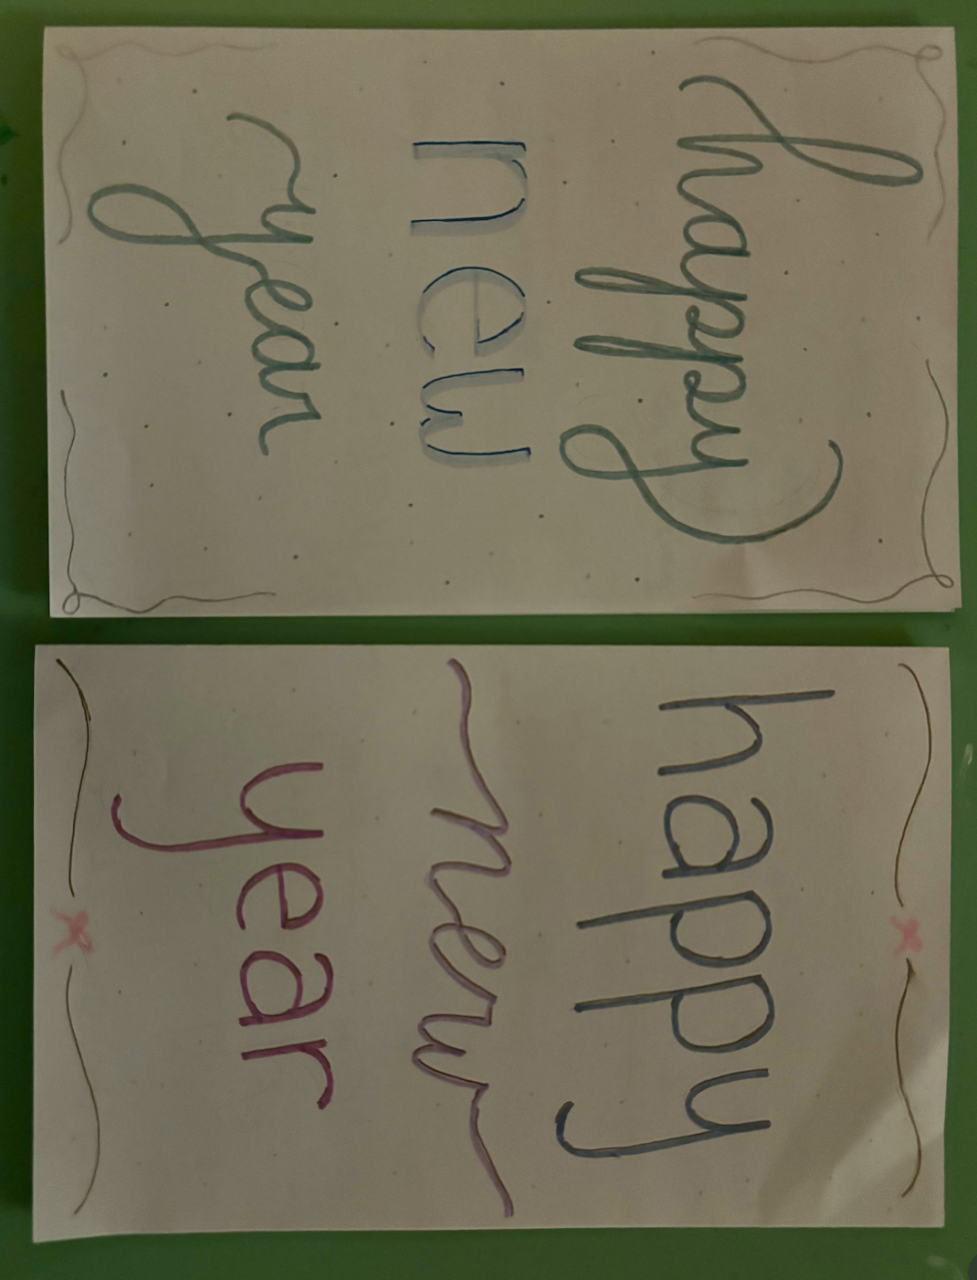 happy
new
year
happy
new
year